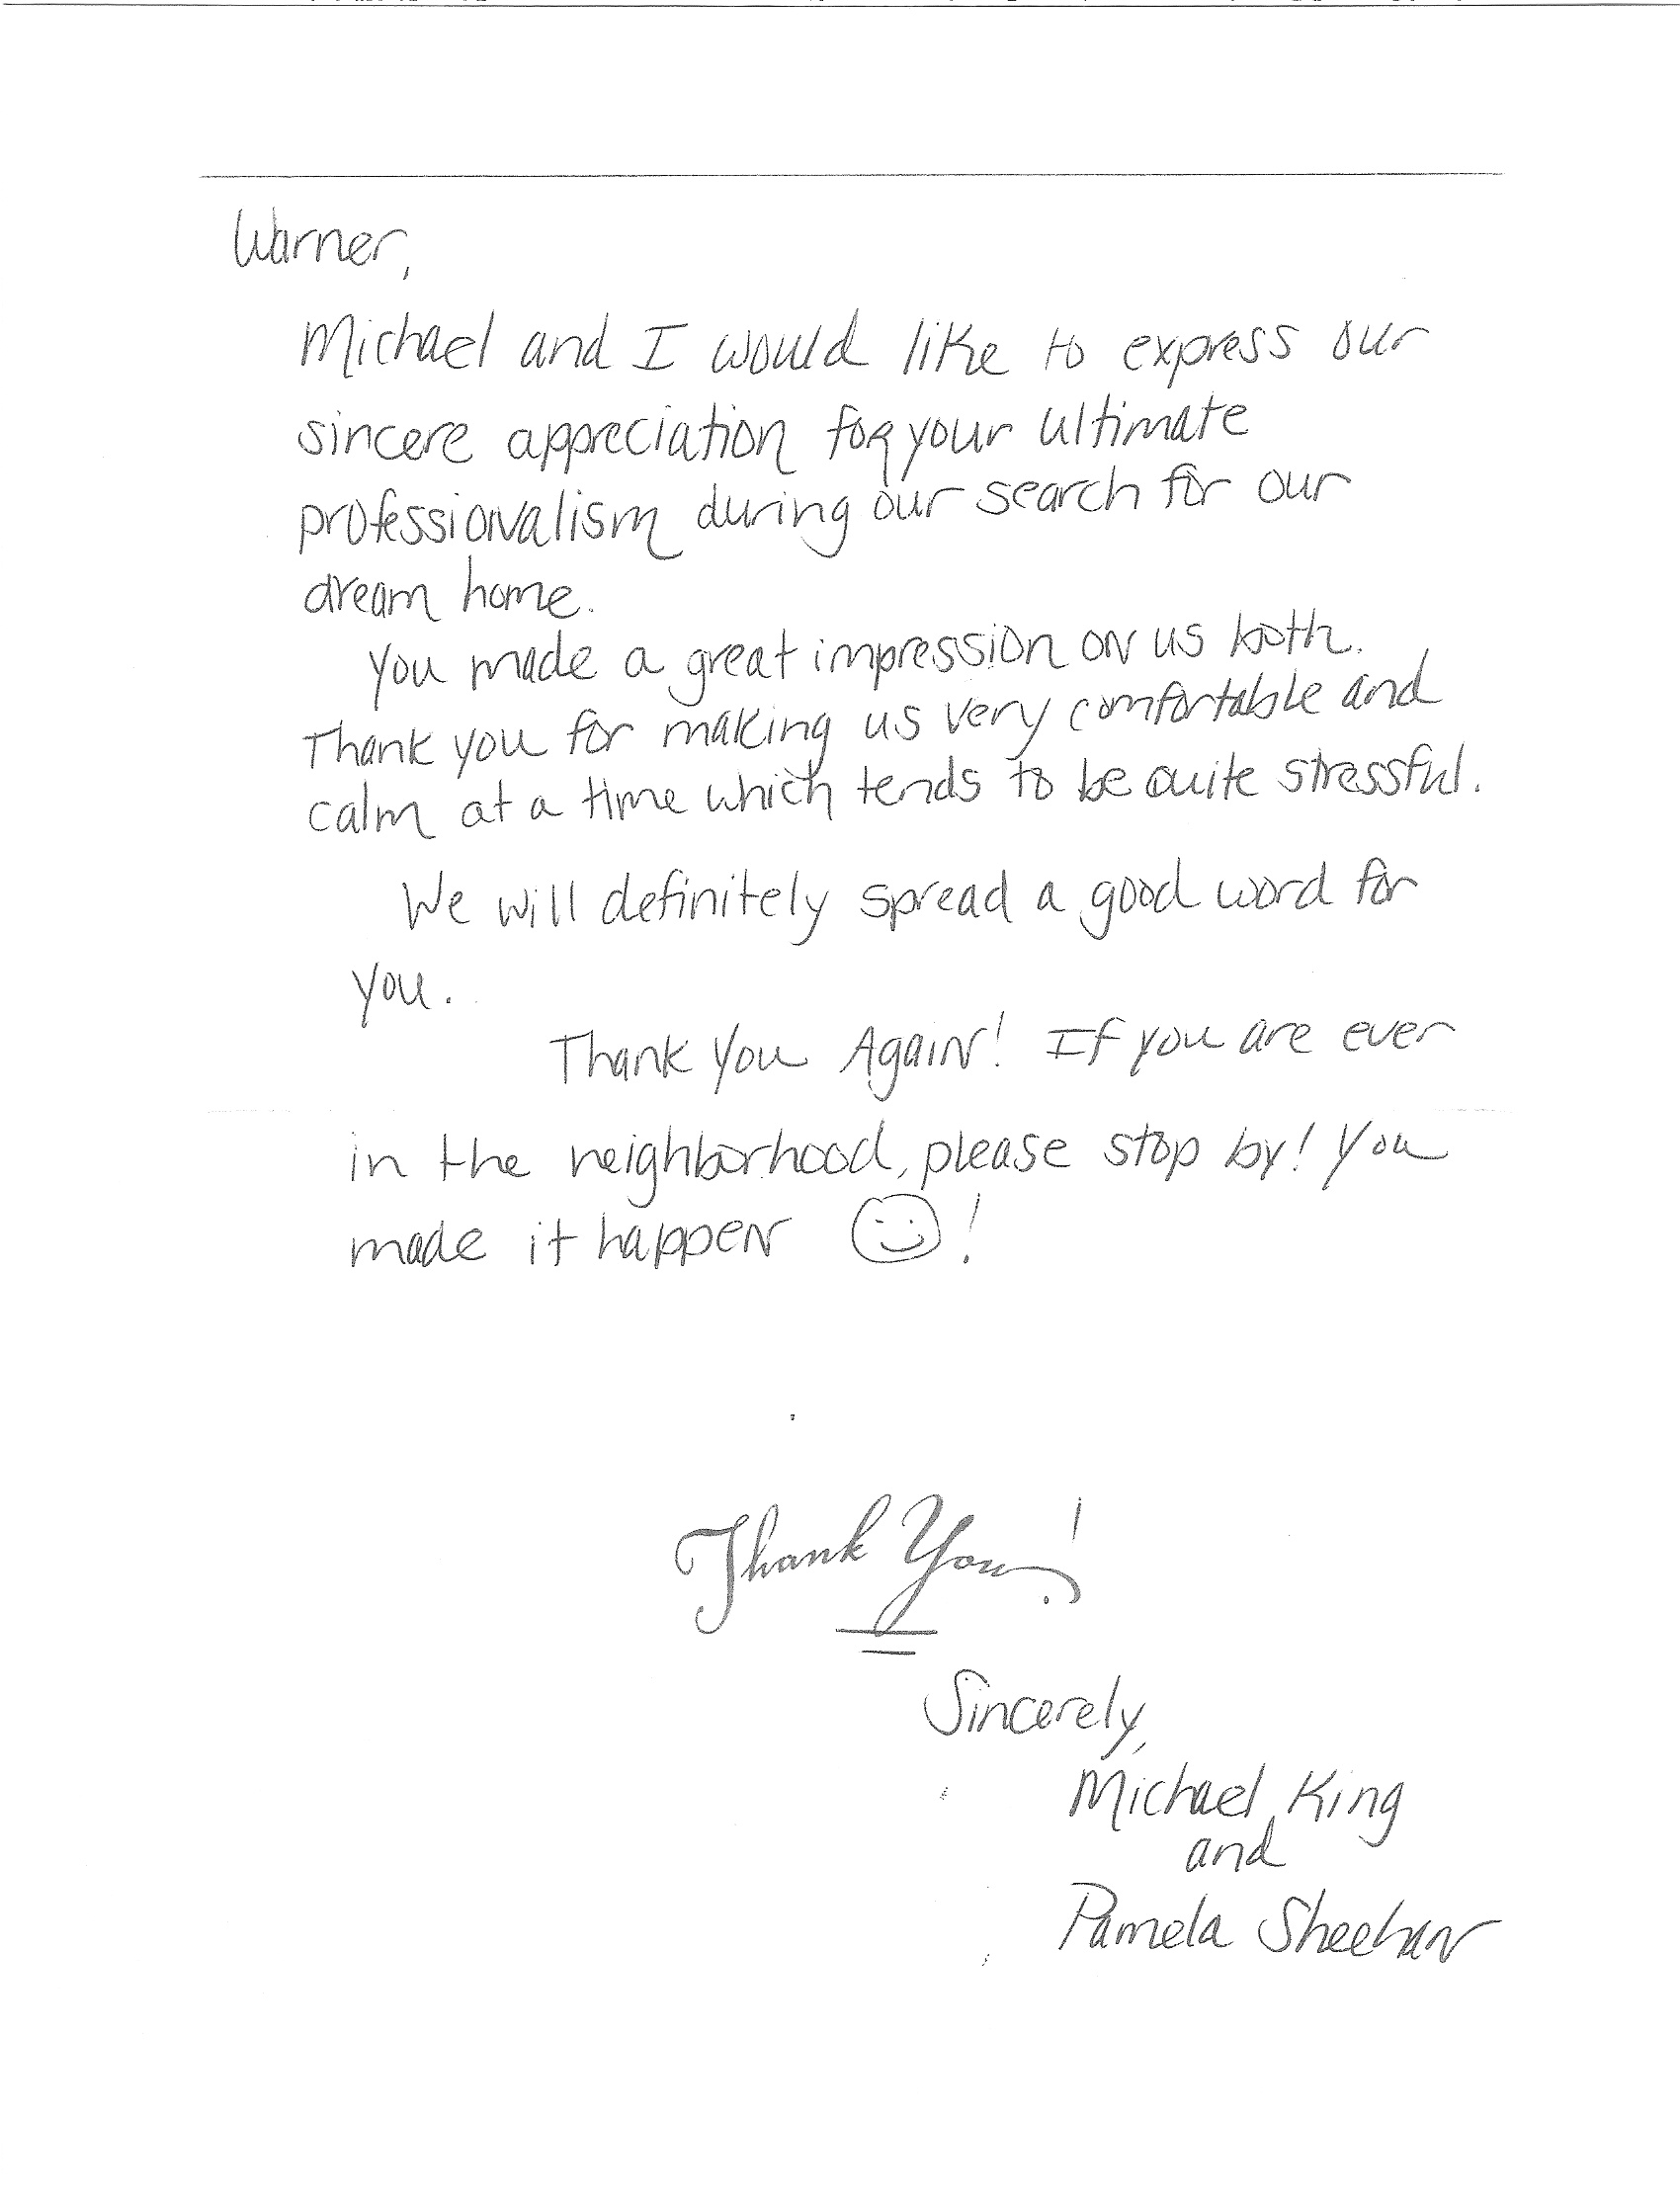 Warner,
Michael and I would like to express our
sincere appreciation for your ultimate
professionalism during our search for our
dream home.
You made a great impression on us both.
Thank you for making us very comfortable and
calm at a time which tends to be quite stressful.
We will definitely spread a good word for
you.
Thank You Again! If you are ever
in the neighborhood, please stop by! You
made it happen ☺!
Thank You!
Sincerely,
Michael King
and
Pamela Sheehan